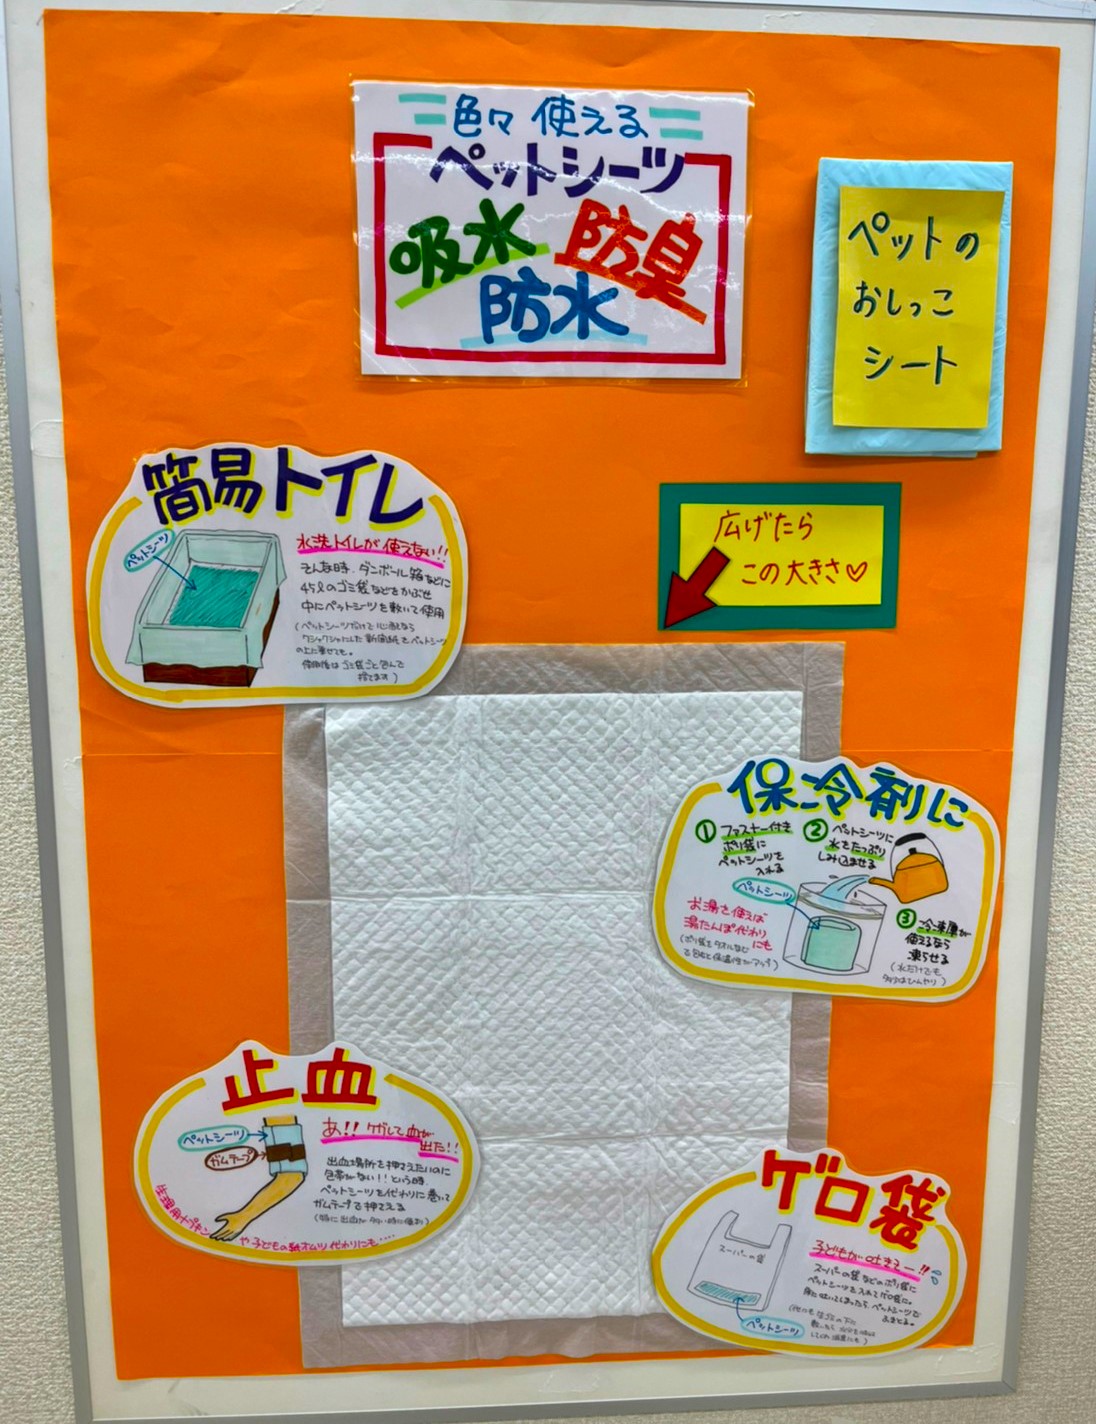 色々使える
ペットシーツ
吸水 防臭
防水
ペットの
おしっこ
シート
広げたら
この大きさ♡
簡易トイレ
ペットシーツ
水洗トイレが使えない!!
そんな時、ダンボール箱などに
45ℓのゴミ袋などをかぶせ
中にペットシーツを敷いて使用
(ペットシーツだけで心配なら
クシャクシャにした新聞紙をペットシーツ
の上に乗せても。
使用後はゴミ袋ごと包んで
捨てます)
保冷剤に
① ファスナー付き
ポリ袋に
ペットシーツを
入れる
② ペットシーツに
水をたっぷり
しみ込ませる
ペットシーツ
③ 冷凍庫が
使えるなら
凍らせる
(水だけでも
ひんやり)
お湯を使えば
湯たんぽ代わり
にも
(ポリ袋をタオルなど
保温性がアップ)
止血
ペットシーツ
ガムテープ
あ!! ケガして血が
出た!!
出血場所を押さえたいのに
包帯がない!!という時、
ペットシーツを代わりに巻いて
ガムテープで押さえる
(特に出血が多い時に便利)
生理用ナプキン
や子どもの紙オムツ代わりにも‥‥
ゲロ袋
スーパーの袋
ペットシーツ
子どもが吐きそー!!
スーパーの袋などのポリ袋に
ペットシーツを入れてゲロ袋に。
床に吐いてしまったら、ペットシーツで
ふきとる。